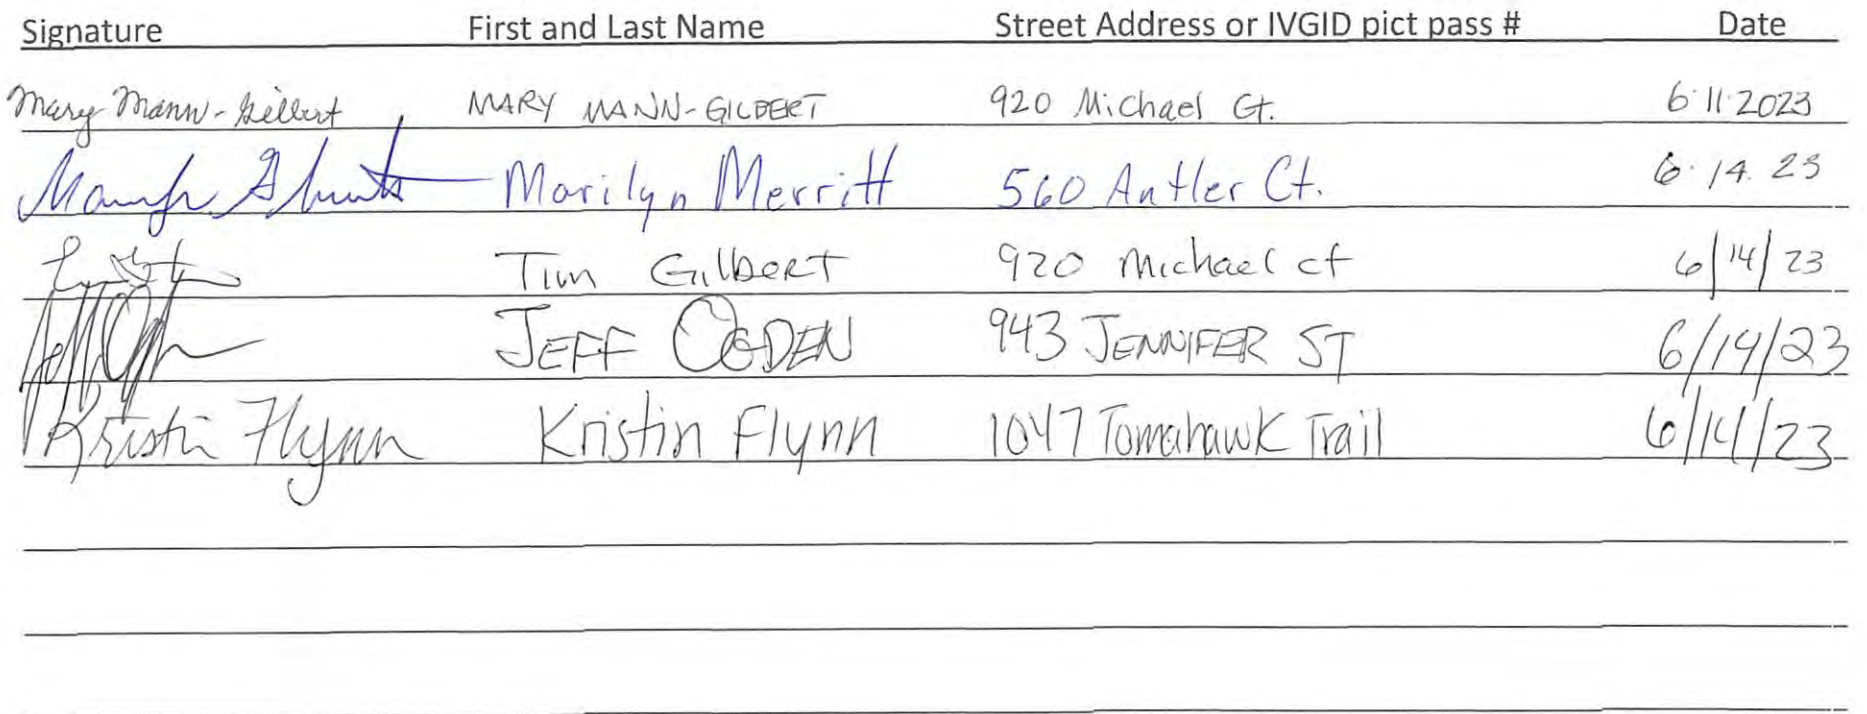 Signature First and Last Name Street Address or IVGID pict pass # Date
Mary Mann-Gilbert MARY MANN-GILBERT 920 Michael Ct. 6·11·2023
Marilyn Merritt 560 Antler Ct. 6·14·23
Tim Gilbert 920 Michael ct 6/14/23
Jeff Ogden JEFF OGDEN 943 JENNIFER ST 6/14/23
Kristin Flynn Kristin Flynn 1047 Tomahawk Trail 6/14/23